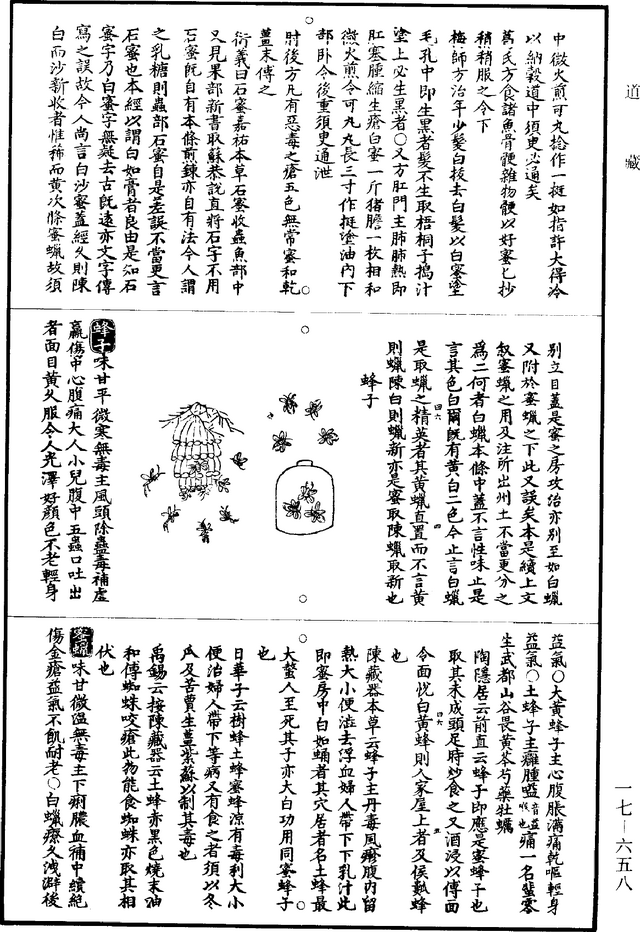 道藏
中微火煎可丸捻作一挺如指許大得冷
以納穀道中須臾必通矣
葛氏方食諸魚骨鯁雜物鯁以好蜜匕抄
稍稍服之令下
梅師方治年少髮白拔去白髮以白蜜塗
毛孔中即生黑者髮不生取梧桐子搗汁
塗上必生黑者〇又方肛門主肺肺熱即
肛塞腫縮生瘡白蜜一斤猪膽一枚相和
微火煎令可丸丸長三寸作挺塗油內下
部卧令後重須臾通泄
肘後方凡有惡毒之瘡五色無常蜜和乾
薑末傅之
衍義曰石蜜嘉祐本草石蜜收蟲魚部中
又見果部新書取蘇恭說直將石字不用
石蜜既自有本條煎鍊亦自有法今人謂
之乳糖則蟲部石蜜自是差誤不當更言
石蜜也本經以謂白如膏者良由是知石
蜜字乃白蜜字無疑去古既遠亦文字傳
寫之誤故今人尚言白沙蜜蓋經久則陳
白而沙新收者惟稀而黃次條蜜蠟故須
別立目蓋是蜜之房攻治亦別至如白蠟
又附於蜜蠟之下此又誤矣本是續上文
叙蜜蠟之用及注所出州土不當更分之
為二何者白蠟本條中蓋不言性味止是
言其色白爾既有黃白二色今止言白蠟
是取蠟之精英者其黃蠟直置而不言黃
則蠟陳白則蠟新亦是蜜取陳蠟取新也
蜂子
蜂子味甘平微寒無毒主風頭除蠱毒補虛
羸傷中心腹痛大人小兒腹中五蟲口吐出
者面目黃久服令人光澤好顏色不老輕身
益氣〇大黃蜂子主心腹脹滿痛乾嘔輕身
益氣〇土蜂子主癰腫嗌音益喉也痛一名蜚零
生武都山谷畏黃芩芍藥牡蠣
陶隱居云前直云蜂子即應是蜜蜂子也
取其未成頭足時炒食之又酒浸以傅面
令面悅白黃蜂則人家屋上者及㺅㼎蜂
也
陳藏器本草云蜂子主丹毒風㾦腹內留
熱大小便澁去浮血婦人帶下下乳汁此
即蜜房中白如蛹者其穴居者名土蜂最
大螫人至死其子亦大白功用同蜜蜂子
也
日華子云樹蜂土蜂蜜蜂涼有毒利大小
便治婦人帶下等病又有食之者須以冬
瓜及苦蕒生薑紫蘇以制其毒也
禹錫云按陳藏器云土蜂赤黑色燒末油
和傅蜘蛛咬瘡此物能食蜘蛛亦取其相
伏也
蜜蠟味甘微溫無毒主下痢膿血補中續絕
傷金瘡益氣不飢耐老〇白蠟療久洩澼後
一七—六五八